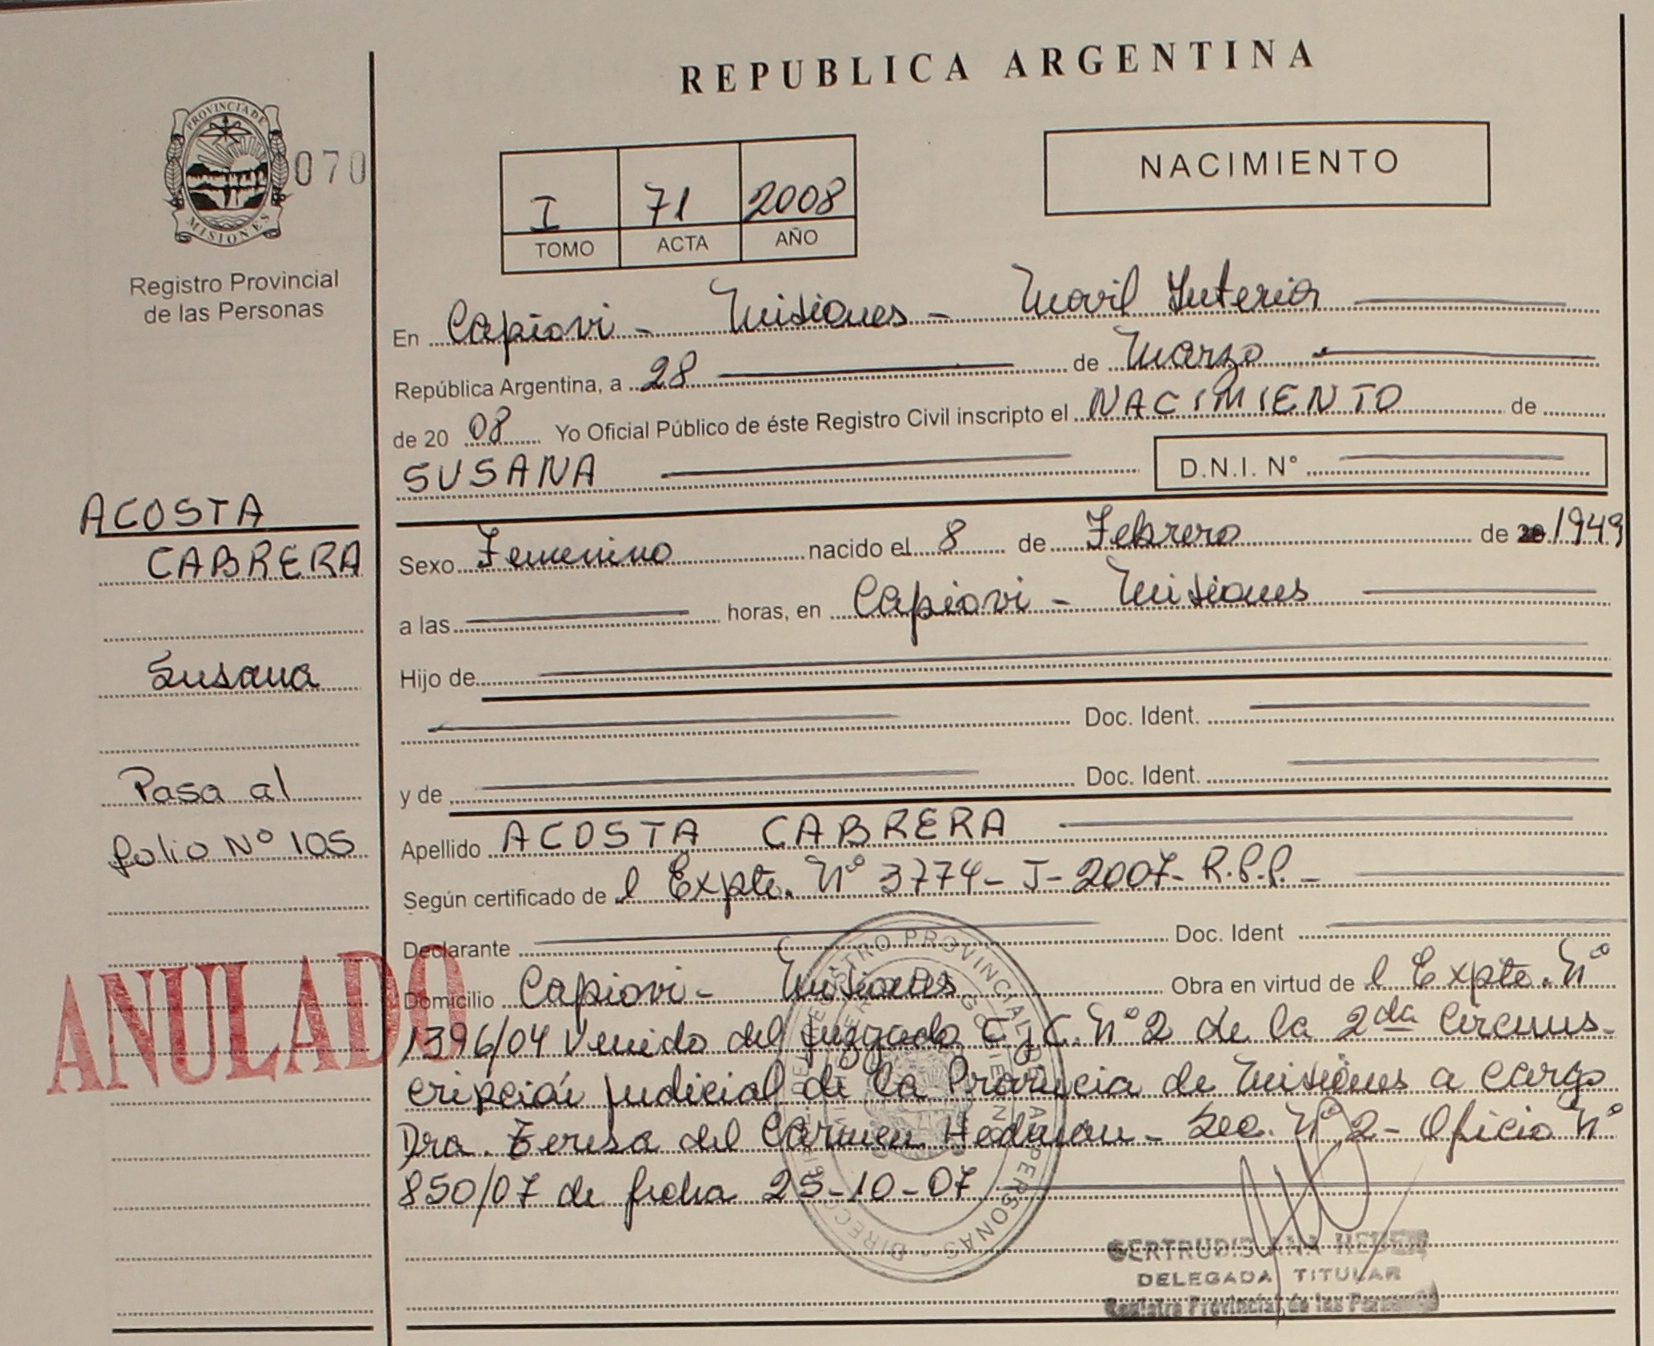 REPUBLICA ARGENTINA
PROVINCIA DE
MISIONES
070
Registro Provincial
de las Personas
I 71 2008
TOMO ACTA AÑO
NACIMIENTO
En Capiovi - Misiones - Movil Interior
República Argentina, a 28 de Marzo
de 20 08 Yo Oficial Público de éste Registro Civil inscripto el NACIMIENTO de
SUSANA D.N.I. N°
ACOSTA
CABRERA
Susana
Pasa al
folio Nº 105
ANULADO
Sexo Femenino nacido el 8 de Febrero de 20 1949
a las horas, en Capiovi - Misiones
Hijo de
Doc. Ident.
y de Doc. Ident.
Apellido ACOSTA CABRERA
Según certificado de l Expte. Nº 3774 - J - 2007 - R.P.P. -
Declarante Doc. Ident
Domicilio Capiovi - Misiones Obra en virtud de l Expte. Nº
1396/04 Venido del juzgado C y C. Nº 2 de la 2da Circuns-
cripción judicial de la Provincia de Misiones a cargo
Dra. Teresa del Carmen - Sec. Nº 2 - Oficio Nº
850/07 de fecha 25-10-07
GERTRUDIS ANA
DELEGADA TITULAR
Registro Provincial de las Personas